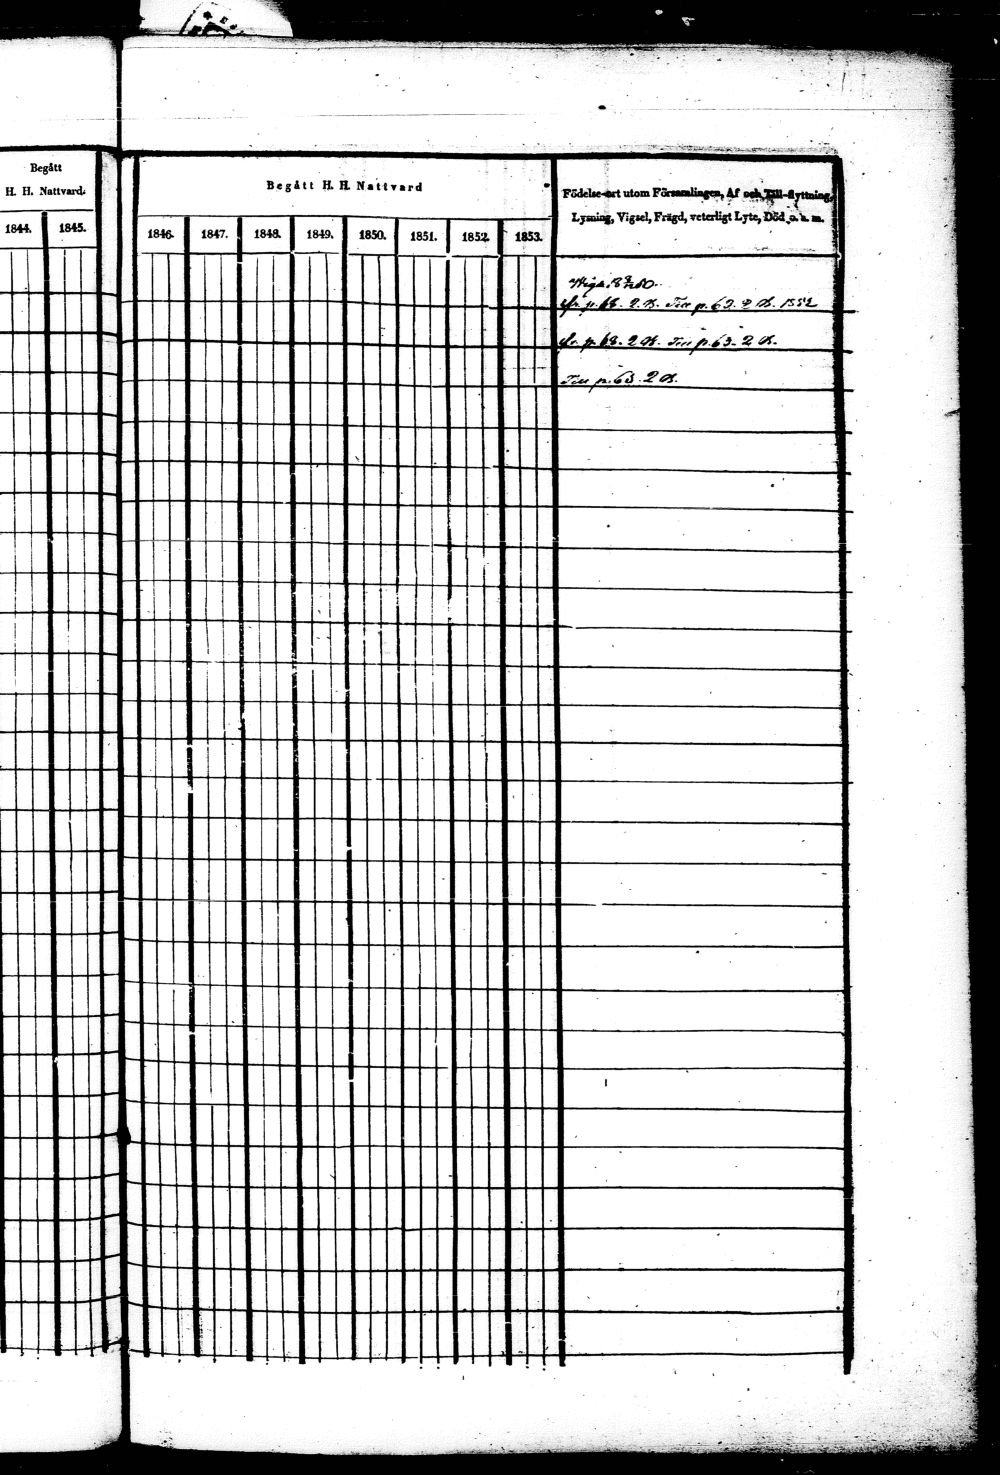 Begått
H. H. Nattvard.
1844. 1845.
Begått H. H. Nattvard
1846. 1847. 1848. 1849. 1850. 1851. 1852. 1853.
Födelse-ort utom Församlingen, Af och Till-flyttning,
Lysning, Vigsel, Frägd, veterligt Lyte, Död o. s. m.
fr. p. 68. 2 D. Till p. 63. 2 D. 1852
fr. p. 68. 2 D. Till p. 63. 2 D.
Till p. 63. 2 D.